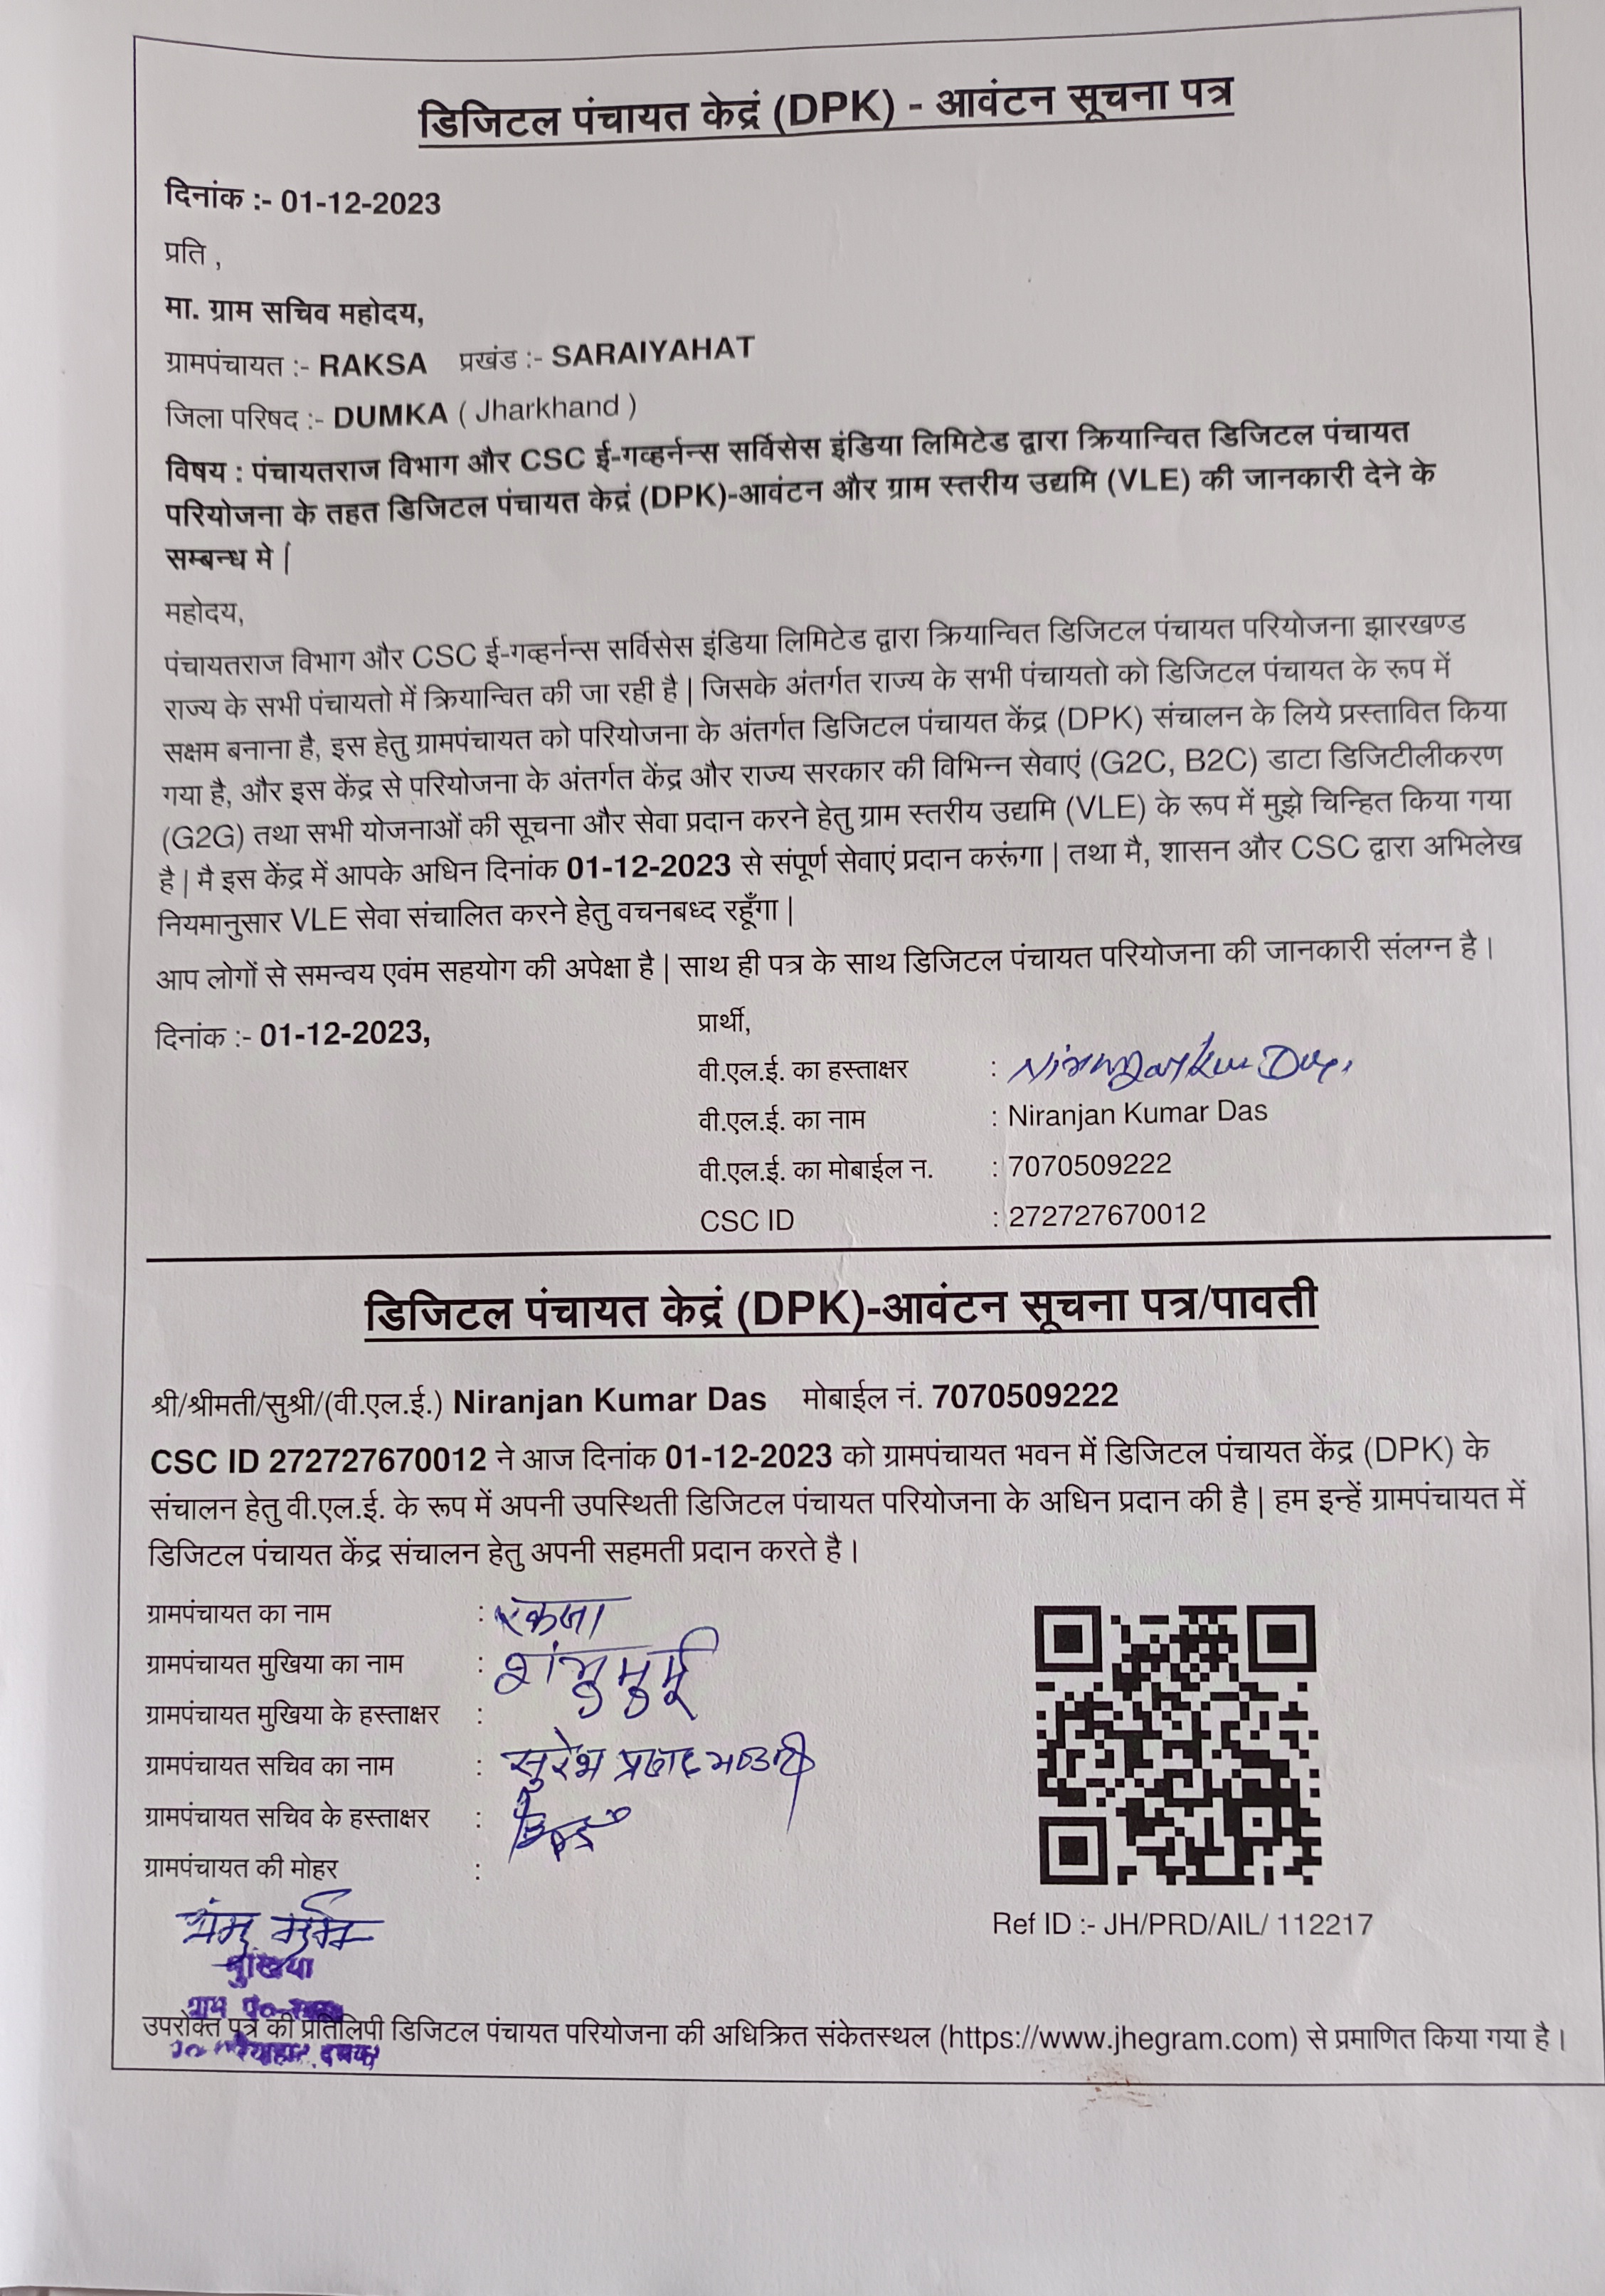 डिजिटल पंचायत केद्रं (DPK) - आवंटन सूचना पत्र
दिनांक :- 01-12-2023
प्रति ,
मा. ग्राम सचिव महोदय,
ग्रामपंचायत :- RAKSA प्रखंड :- SARAIYAHAT
जिला परिषद :- DUMKA ( Jharkhand )
विषय : पंचायतराज विभाग और CSC ई-गव्हर्नन्स सर्विसेस इंडिया लिमिटेड द्वारा क्रियान्वित डिजिटल पंचायत
परियोजना के तहत डिजिटल पंचायत केद्रं (DPK)-आवंटन और ग्राम स्तरीय उद्यमि (VLE) की जानकारी देने के
सम्बन्ध मे |
महोदय,
पंचायतराज विभाग और CSC ई-गव्हर्नन्स सर्विसेस इंडिया लिमिटेड द्वारा क्रियान्वित डिजिटल पंचायत परियोजना झारखण्ड
राज्य के सभी पंचायतो में क्रियान्वित की जा रही है | जिसके अंतर्गत राज्य के सभी पंचायतो को डिजिटल पंचायत के रूप में
सक्षम बनाना है, इस हेतु ग्रामपंचायत को परियोजना के अंतर्गत डिजिटल पंचायत केंद्र (DPK) संचालन के लिये प्रस्तावित किया
गया है, और इस केंद्र से परियोजना के अंतर्गत केंद्र और राज्य सरकार की विभिन्न सेवाएं (G2C, B2C) डाटा डिजिटीलीकरण
(G2G) तथा सभी योजनाओं की सूचना और सेवा प्रदान करने हेतु ग्राम स्तरीय उद्यमि (VLE) के रूप में मुझे चिन्हित किया गया
है | मै इस केंद्र में आपके अधिन दिनांक 01-12-2023 से संपूर्ण सेवाएं प्रदान करूंगा | तथा मै, शासन और CSC द्वारा अभिलेख
नियमानुसार VLE सेवा संचालित करने हेतु वचनबध्द रहूँगा |
आप लोगों से समन्वय एवंम सहयोग की अपेक्षा है | साथ ही पत्र के साथ डिजिटल पंचायत परियोजना की जानकारी संलग्न है ।
दिनांक :- 01-12-2023,
प्रार्थी,
वी.एल.ई. का हस्ताक्षर :
वी.एल.ई. का नाम : Niranjan Kumar Das
वी.एल.ई. का मोबाईल न. : 7070509222
CSC ID : 272727670012
डिजिटल पंचायत केद्रं (DPK)-आवंटन सूचना पत्र/पावती
श्री/श्रीमती/सुश्री/(वी.एल.ई.) Niranjan Kumar Das मोबाईल नं. 7070509222
CSC ID 272727670012 ने आज दिनांक 01-12-2023 को ग्रामपंचायत भवन में डिजिटल पंचायत केंद्र (DPK) के
संचालन हेतु वी.एल.ई. के रूप में अपनी उपस्थिती डिजिटल पंचायत परियोजना के अधिन प्रदान की है | हम इन्हें ग्रामपंचायत में
डिजिटल पंचायत केंद्र संचालन हेतु अपनी सहमती प्रदान करते है ।
ग्रामपंचायत का नाम :
ग्रामपंचायत मुखिया का नाम : शंभु मुर्मू
ग्रामपंचायत मुखिया के हस्ताक्षर :
ग्रामपंचायत सचिव का नाम : सुरेश प्रसाद
ग्रामपंचायत सचिव के हस्ताक्षर :
ग्रामपंचायत की मोहर :
मुखिया
Ref ID :- JH/PRD/AIL/ 112217
उपरोक्त पत्र की प्रतिलिपी डिजिटल पंचायत परियोजना की अधिक्रित संकेतस्थल (https://www.jhegram.com) से प्रमाणित किया गया है ।